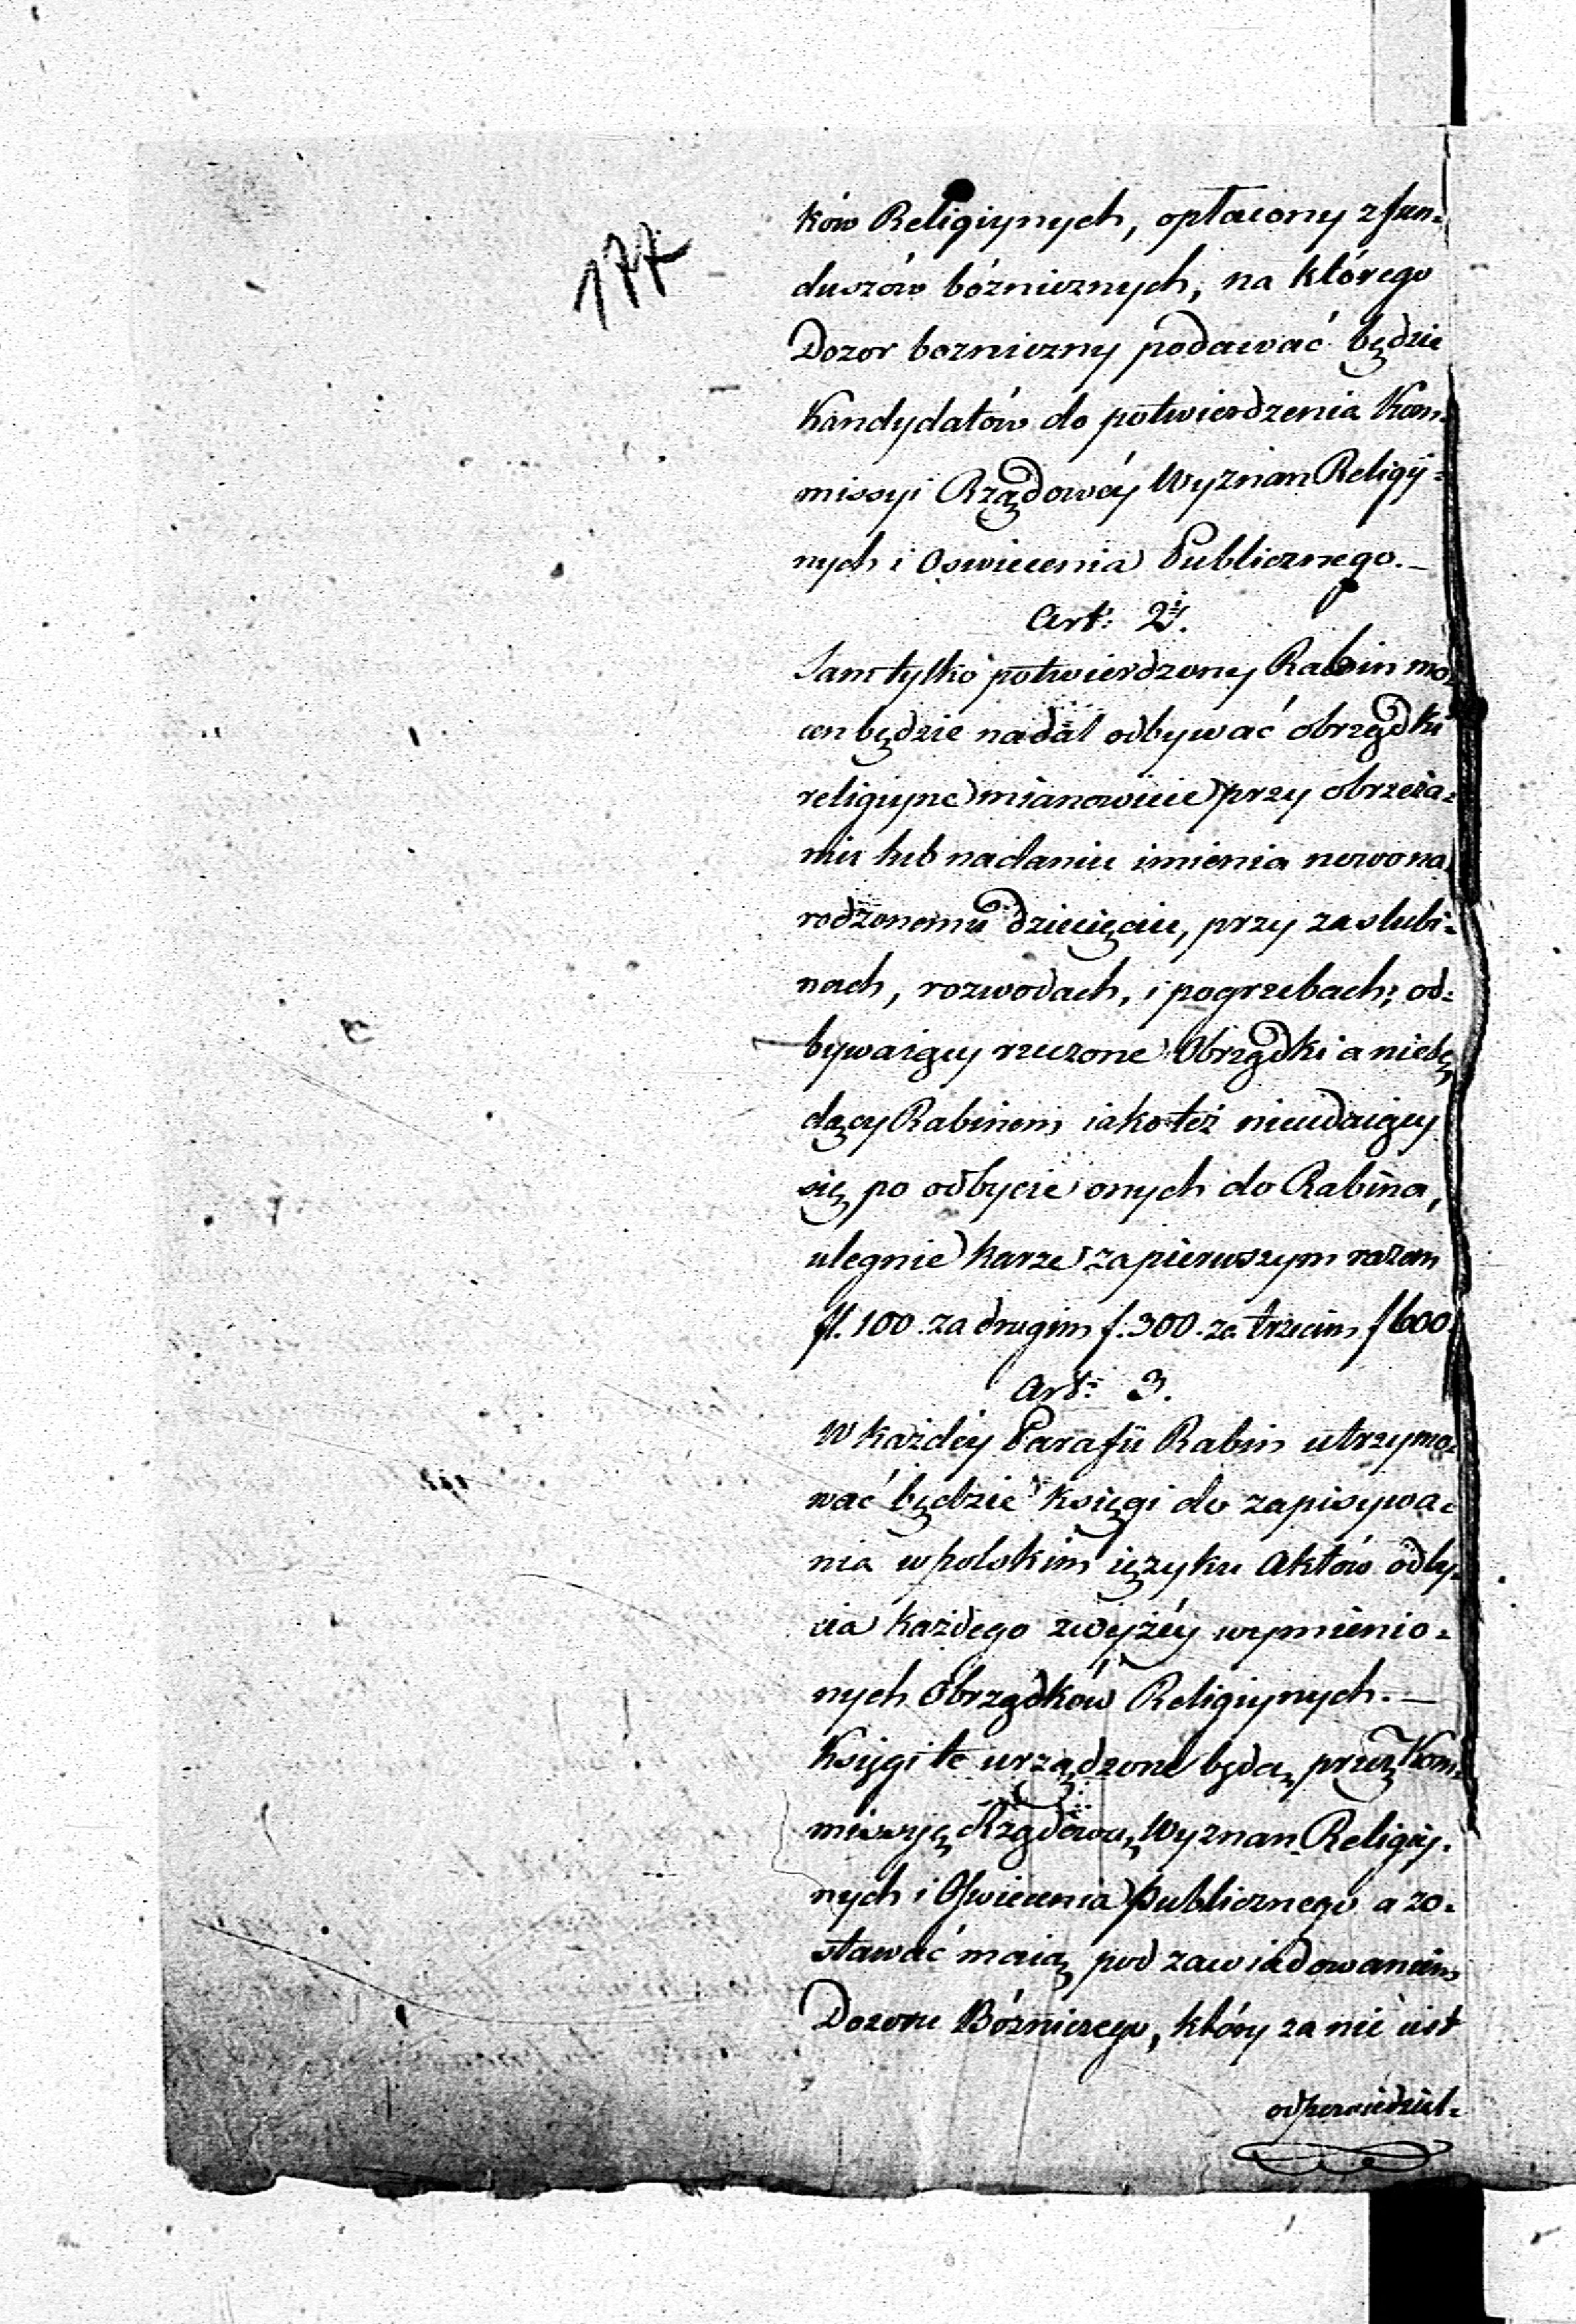 177
ków Religiynych, opłacony z fun-
duszów bóżnicznych, na którego
Dozor bozniczny podawać będzie
Kandydatów do potwierdzenia Kom-
missyi Rządowéy Wyznan Religiy-
nych i Oswiecenia Publicznego.—
Art: 2i.
Sam tylko potwierdzony Rabin mo-
cen będzie nadal odbywać obrządki
religiyne mianowicie przy obrzeza-
niu lub nadaniu imienia nowona
rodzonemu dziecięciu, przy zaslubi-
nach, rozwodach, i pogrzebach; od-
bywaiący rzeczone Obrządki a niebę
dący Rabinem iako też nieudaiący
się po odbycie onych do Rabina,
ulegnie karze za pierwszym razem
fl. 100. za drugim f. 300. za trzecim f 600
Art: 3.
W każdéy Parafii Rabin utrzymo-
wać będzie księgi do zapisywa-
nia w polskim ięzyku Aktów odby-
cia każdego zwyżéy wymienio-
nych Obrządków Religiynych.—
Księgi te urządzone będą przez Kom-
missyię Rządową Wyznan Religiy-
nych i Oświecenia Publicznego a zo-
stawać maią pod zawiadowaniem
Dozoru Bóżniczego, który za nie iest
odpowiedzial-